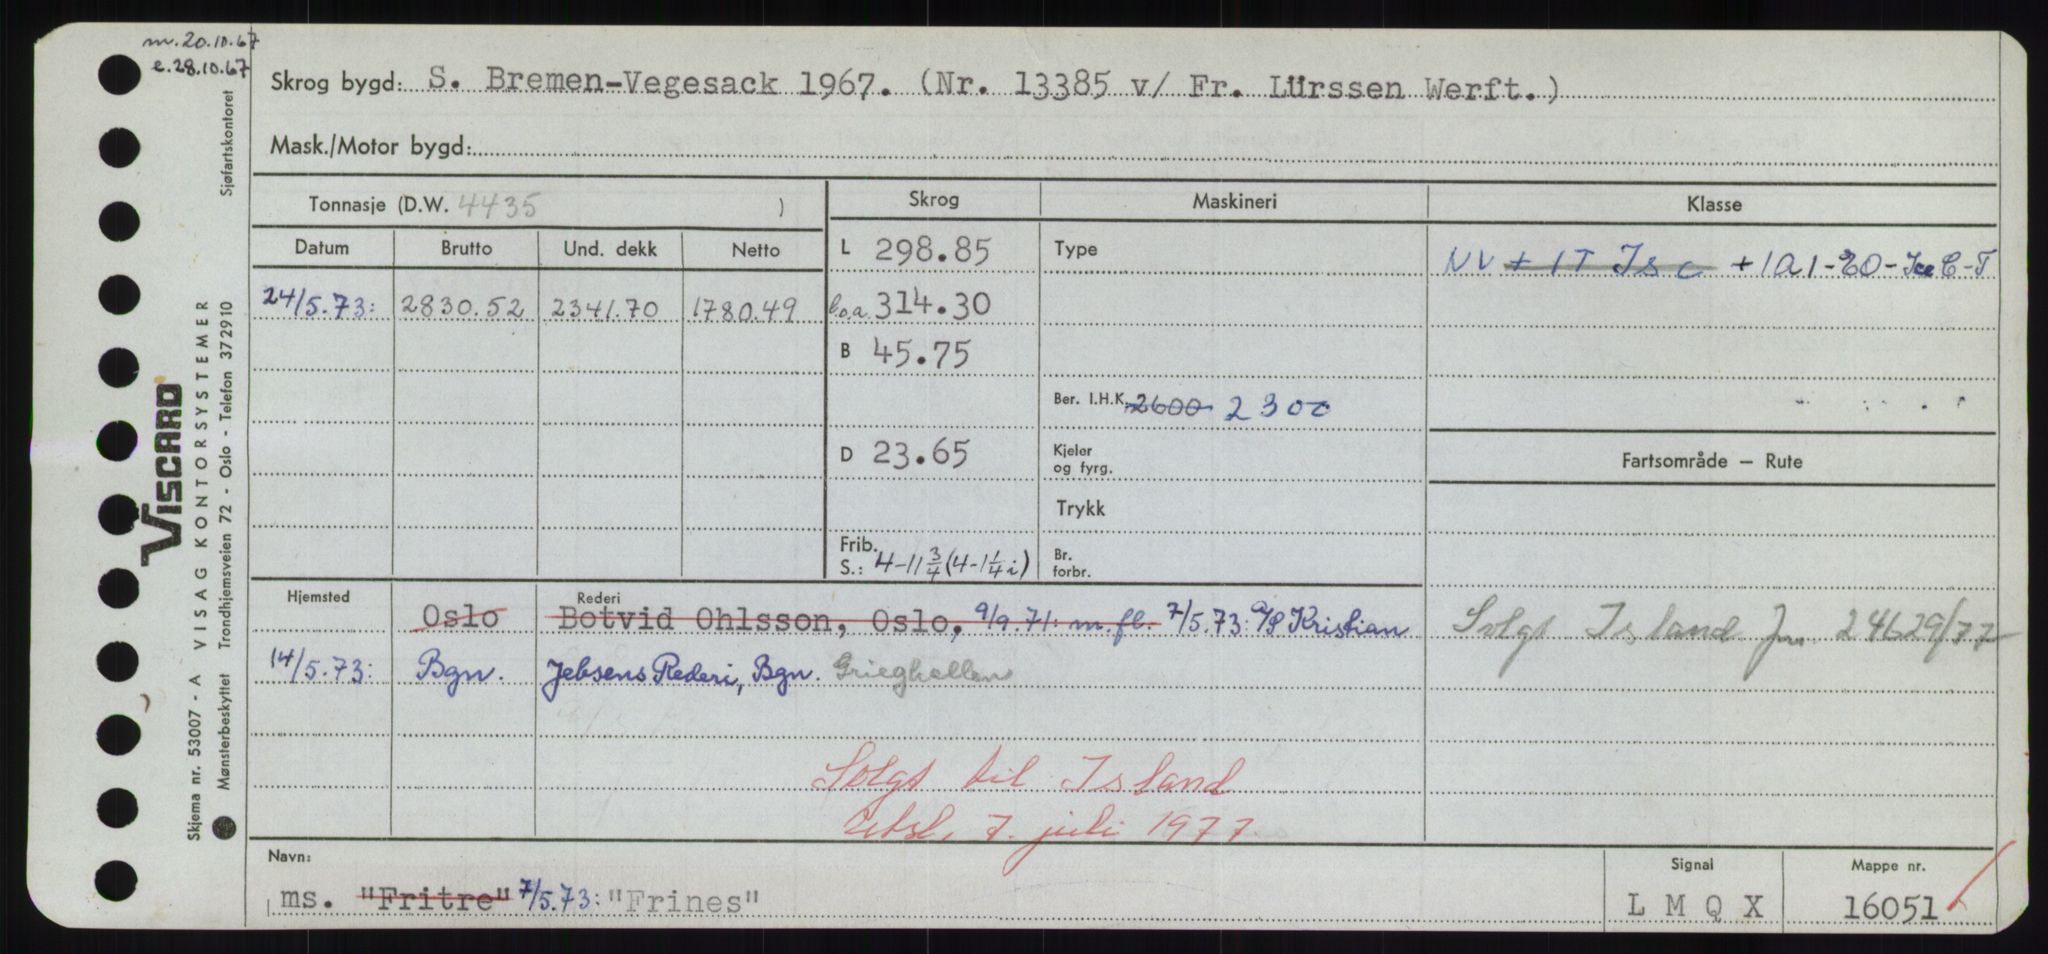 m. 20.10.67
e. 28.10.67
Skrog bygd: S. Bremen-Vegesack 1967. (Nr. 13385 v/ Fr. Lürssen Werft.)
Mask./Motor bygd:
Tonnasje (D.W. 4435 )
Skrog
Maskineri
Klasse
Datum Brutto Und. dekk Netto
24/5.73: 2830.52 2341.70 1780.49
L 298.85
l.o.a. 314.30
B 45.75
D 23.65
Frib.
S.: 4-11 3/4 (4-1 1/4 i)
Type
Ber. I.H.K. 2600 2300
Kjeler
og fyrg.
Trykk
Br.
forbr.
NV + 1T Is C +1A1-EO-Ice C-T
Fartsområde – Rute
Solgt Island Jnr. 24629/77
Hjemsted Rederi
Oslo Botvid Ohlsson, Oslo, 9/9.71: m.fl. 7/5.73: A/S Kristian
14/5.73: Bgn. Jebsens Rederi, Bgn. Grieghallen
Solgt til Island
7. juli 1977
Navn:
ms. "Fritre" 7/5.73: "Frines"
Signal
L M Q X
Mappe nr.
16051
VISCARD
Skjema nr. 53007 - A VISAG KONTORSYSTEMER
Mønsterbeskyttet Trondhjemsveien 72 - Oslo - Telefon 372910 Sjøfartskontoret